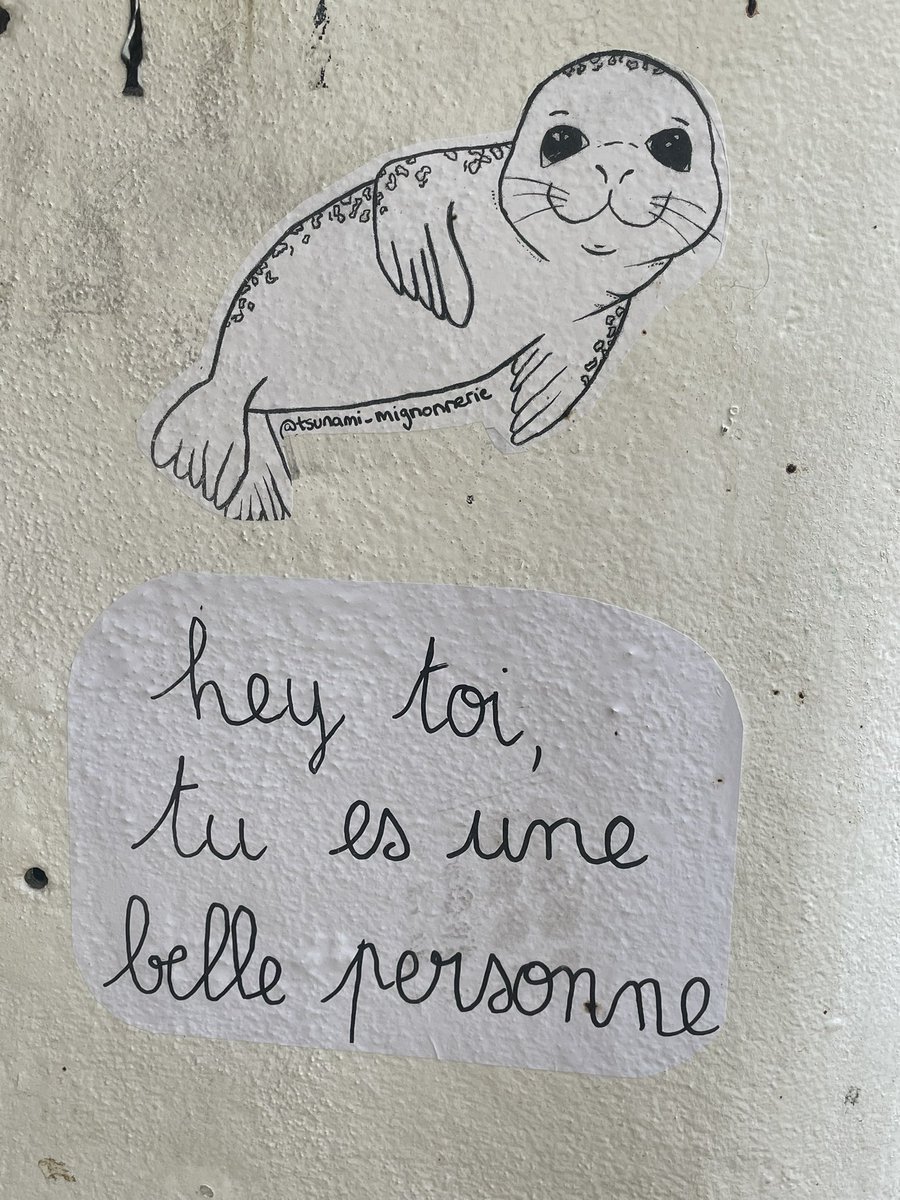 @tsunami_mignonnerie
hey toi,
tu es une
belle personne